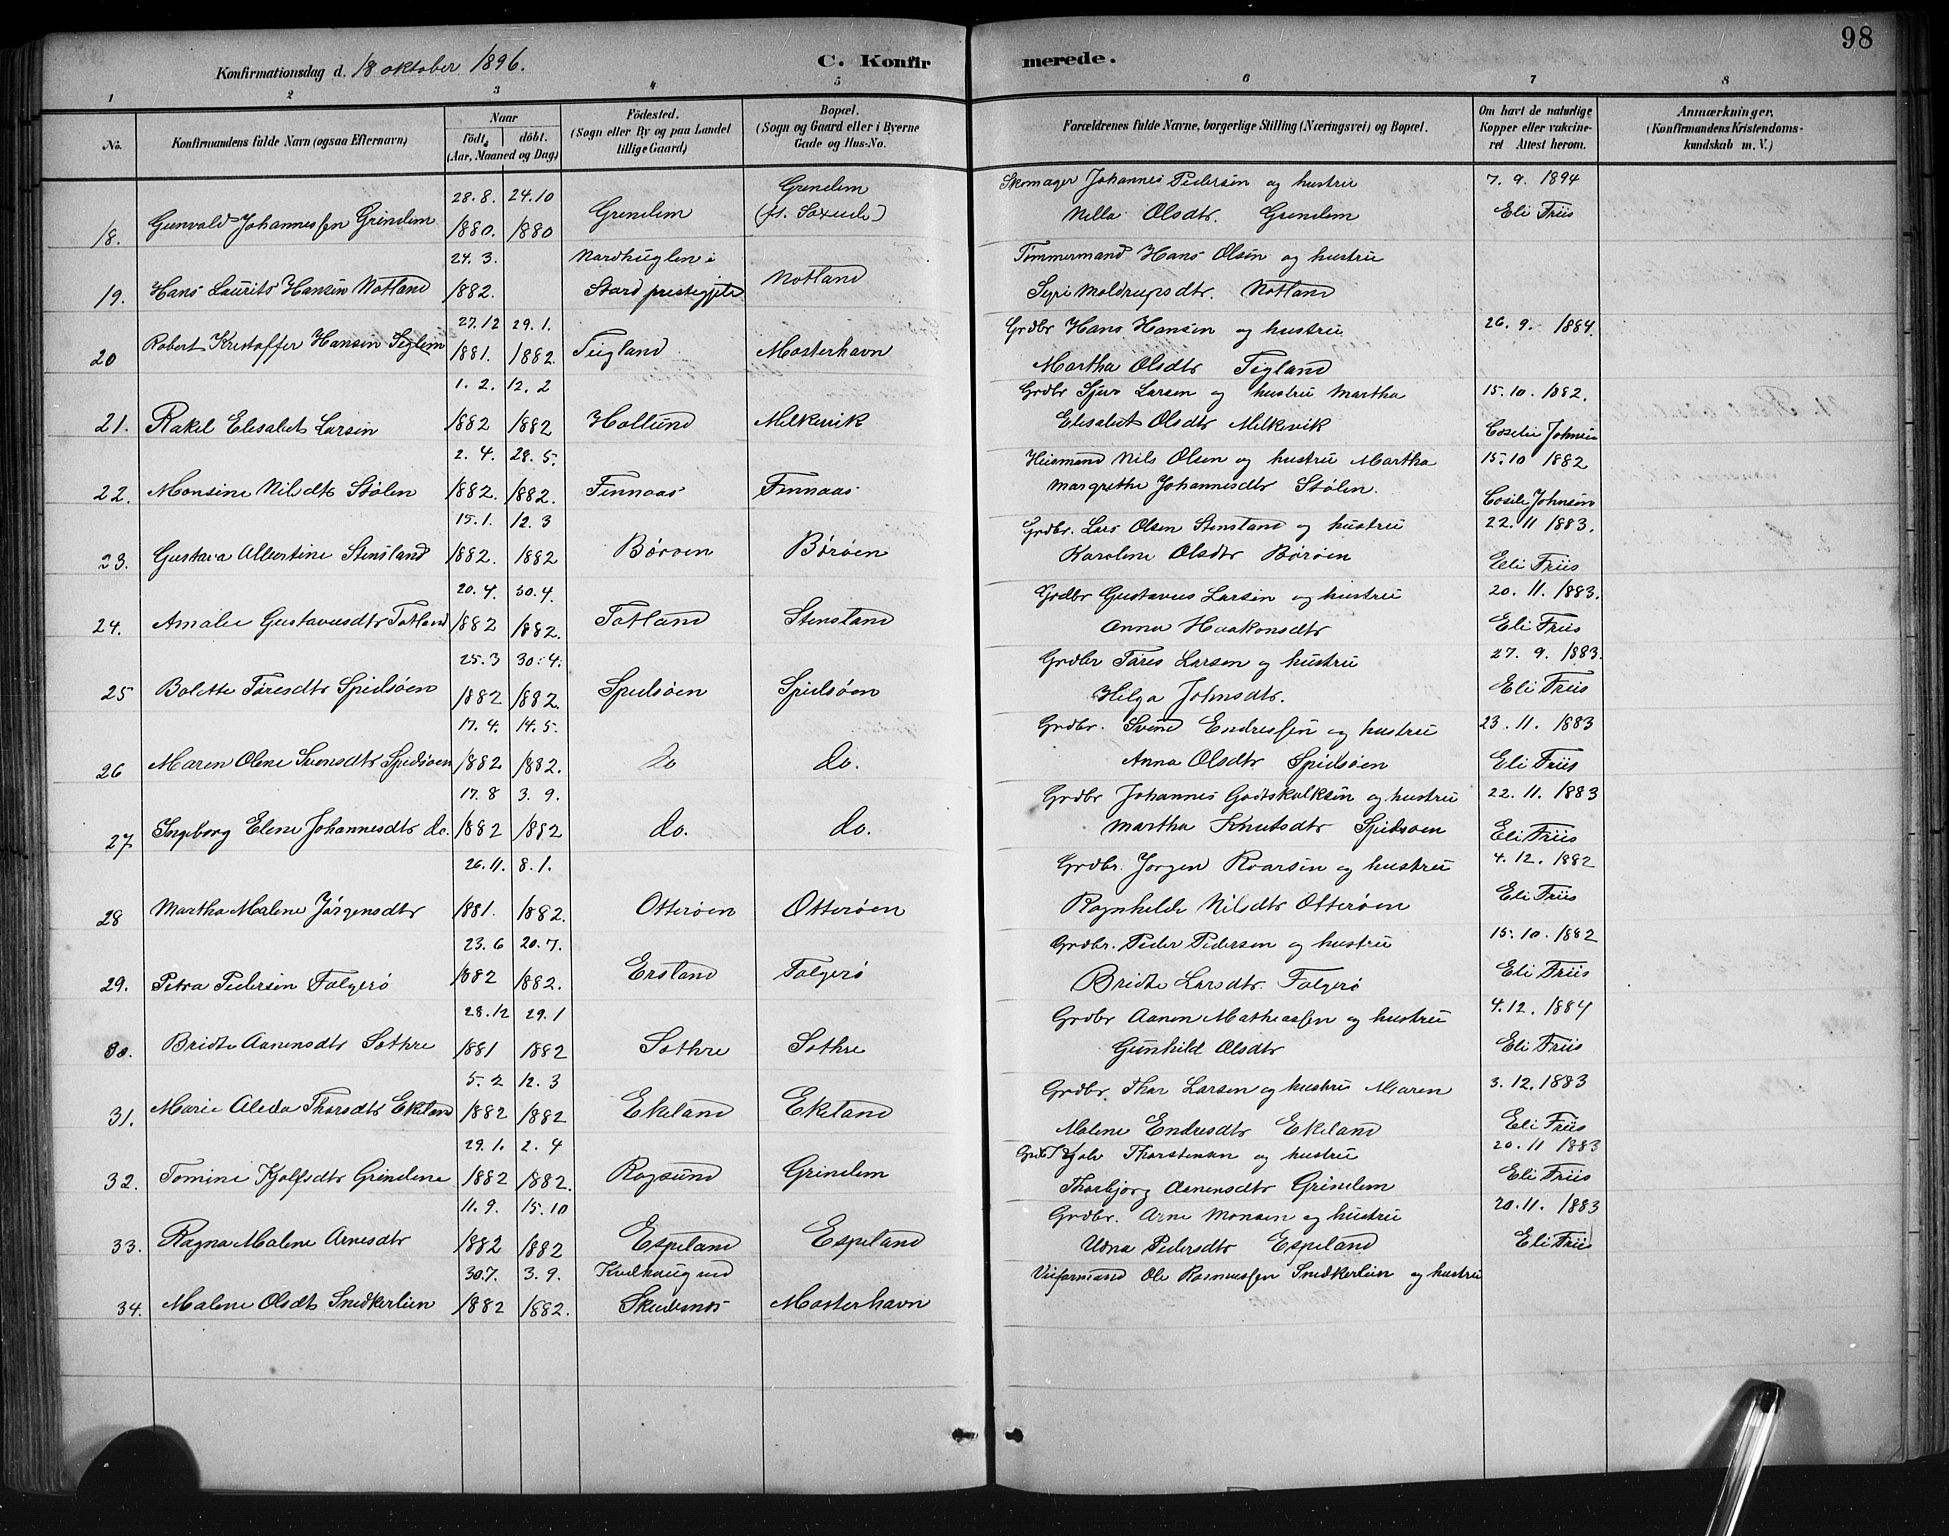 98
Konfirmationsdag d. 18 oktober 1896.
C. Konfirmerede.
1 2 3 4 5 6 7 8
No.
Konfirmandens fulde Navn (ogsaa Efternavn)
Naar
født, døbt.
(Aar, Maaned og Dag)
Fødested.
(Sogn eller By og paa Landet
tillige Gaard)
Bopæl.
(Sogn og Gaard eller i Byerne
Gade og Hus-No.
Forældrenes fulde Navne, borgerlige Stilling (Næringsvei) og Bopæl.
Om havt de naturlige
Kopper eller vakcine-
ret Attest herom.
Anmærkninger.
(Konfirmandens Kristendoms-
kundskab m. V.)
28.8. 24.10 Grindem Skomager Johannes Pedersen og hustru 7. 9. 1894
18. Gunvald Johannessen Grindem 1880. 1880 Grindem Nilla Olsdtr. Grindem Eli Friis
24. 3. Nordhuglen i Tømmermand Hans Olsen og hustru
19. Hans Laurits Hansen Notland 1882. Stord prestegjeld Notland Siri Moldrupsdtr. Notland
27.12 29.1. Grdbr Hans Hansen og hustru 26. 9. 1884.
20 Robert Kristoffer Hansen Teglem 1881. 1882. Tigland Mosterhavn Martha Olsdtr Tigland
1. 2. 12. 2 Grdbr Sjur Larsen og hustru Martha 15.10. 1882.
21. Rakel Elisabet Larsen 1882 1882 Hollund Melkevik Elisabet Olsdtr Melkevik Johnsen
2. 4. 28. 5. Husmand Nils Olsen og hustru Martha 15.10 1882
22. Monsine Nilsdtr Stølen 1882. 1882. Finnaas Finnaas Margrethe Johannesdtr Stølen. Johnsen
15.1. 12. 3 Grdbr. Lars Olsen Stensland og hustru 22. 11 1883.
23. Gustava Albertine Stensland 1882. 1882 Børøen Børøen Karoline Olsdtr Børøen Eli Friis
20. 4. 30. 4. Grdbr Gustavus Larsen og hustru 20. 11. 1883.
24. Amalie Gustavusdtr Totland 1882 1882. Totland Stensland Anna Haakonsdtr Eli Friis
25. 3 30. 4. Grdbr Tøres Larsen og hustru 27. 9. 1883.
25 Bolette Tøresdtr Spidsøen 1882 1882. Spidsøen Spidsøen Helga Johnsdtr. Eli Friis
17. 4. 14. 5. Grdbr. Svend Endressen og hustru 23. 11. 1883
26 Maren Oline Svensdtr Spidsøen 1882 1882. do do. Anna Olsdtr Spidsøen Eli Friis
17. 8 3. 9. Grdbr Johannes Godtskalksen og hustru 22. 11. 1883
27 Ingeborg Elene Johannesdtr do. 1882 1882 do. do. Martha Knutsdtr Spidsøen Eli Friis
26.11. 8.1. Grdbr. Jørgen Roarsen og hustru 4. 12. 1882
28 Martha Malene Jørgensdtr 1881. 1882. Otterøen Otterøen Ragnhilde Nilsdtr Otterøen Eli Friis
23. 6 20. 7. Grdbr. Peder Pedersen og hustru 15. 10. 1882
29. Petra Pedersen Folgerø 1882 1882. Ersland Folgerø Bridte Larsdtr. Folgerø Eli Friis
28.12 29.1 Grdbr Aanen Mathiassen og hustru 4.12. 1884
30. Bridte Aanensdtr Sothre 1881 1882 Sothre Sothre Gunhild Olsdtr Eli Friis
5. 2 12. 3 Grdbr. Thor Larsen og hustru Maren 3. 12. 1883
31. Marie Aleda Thorsdtr Ekeland 1882 1882 Ekeland Ekeland Malene Endresdtr Ekeland Eli Friis
29. 1. 2. 4 Thorstensen og hustru 20. 11 1883
32. Tomine Kjolfsdtr Grindene 1882 1882. Rogsund Grindem Thorbjørg Aanensdtr Grindem Eli Friis
11. 9. 15. 10 Grdbr. Arne Monsen og hustru 20. 11. 1883
33. Ragna Malene Arnesdtr 1882 1882 Espeland Espeland Udna Pedersdtr Espeland Eli Friis
30.7. 3. 9. Kvilhaug ved Ole Rasmussen Snedkerlien og hustru
34. Malene Olsdtr Snedkerlien 1882 1882. Skudesnes Mosterhavn